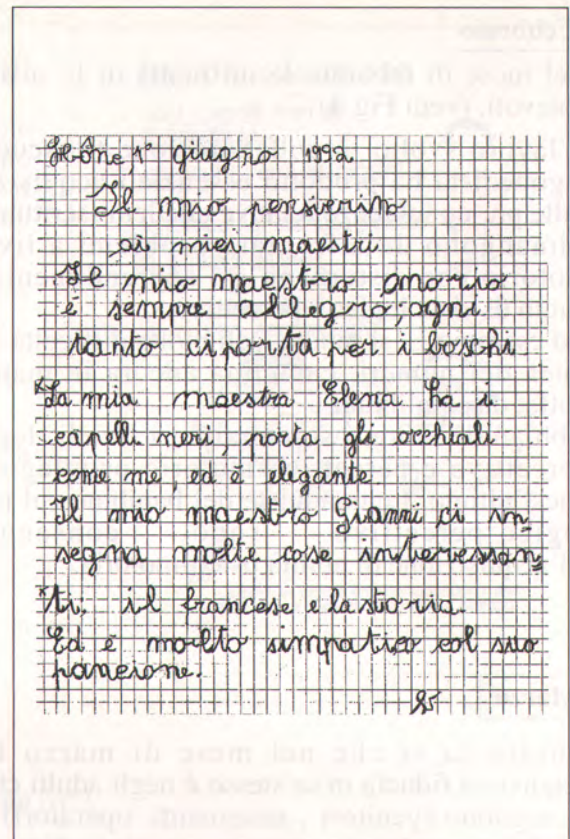 giugno 1992
Il mio pensierino
ai miei maestri
Il mio maestro Onorio
è sempre allegro, ogni
tanto ci porta per i boschi.
La mia maestra Elena ha i
capelli neri, porta gli occhiali
come me, ed è elegante.
Il mio maestro Gianni ci in=
segna molte cose interessan=
ti. il francese e la storia.
Ed è molto simpatico col suo
pancione.